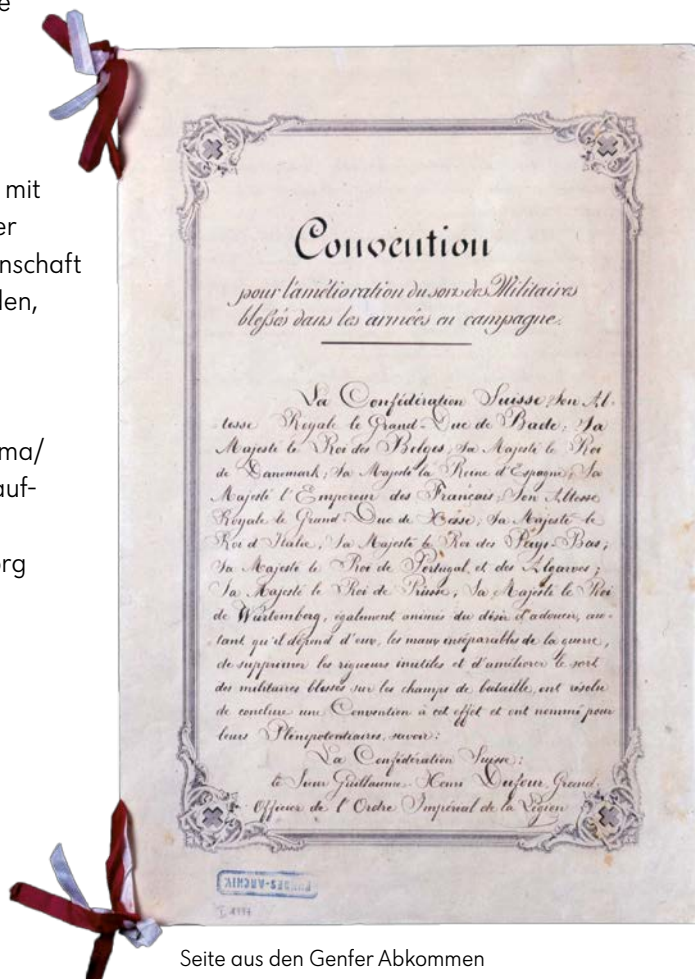 e
mit
er
nschaft
den,
ma/
auf-
org
Convention
pour l'amélioration du sort des Militaires
blessés dans les armées en campagne.
La Confédération Suisse; Son Al-
tesse Royale le Grand-Duc de Bade; Sa
Majesté le Roi des Belges; Sa Majesté le Roi
de Danemark; Sa Majesté la Reine d'Espagne; Sa
Majesté l'Empereur des Français; Son Altesse
Royale le Grand-Duc de Hesse; Sa Majesté le
Roi d'Italie; Sa Majesté le Roi des Pays-Bas;
Sa Majesté le Roi de Portugal et des Algarves;
Sa Majesté le Roi de Prusse; Sa Majesté le Roi
de Würtemberg, également animés du désir d'adoucir, au-
tant qu'il dépend d'eux, les maux inséparables de la guerre,
de supprimer les rigueurs inutiles et d'améliorer le sort
des militaires blessés sur les champs de bataille, ont résolu
de conclure une Convention à cet effet et ont nommé pour
leurs Plénipotentiaires, savoir:
La Confédération Suisse:
le Sieur Guillaume-Henri Dufour, Grand-
Officier de l'Ordre Impérial de la Légion
BUNDES-ARCHIV
Seite aus den Genfer Abkommen